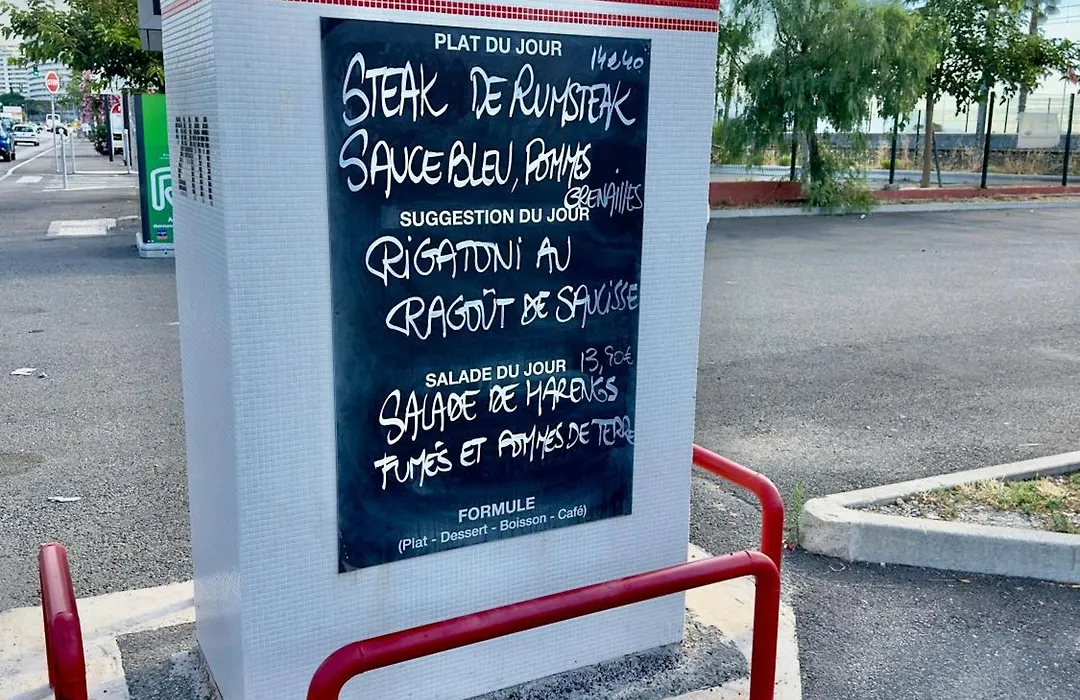 PLAT DU JOUR 14€40
STEAK DE RUMSTEAK
SAUCE BLEU, POMMES
GRENAILLES
SUGGESTION DU JOUR
RIGATONI AU
RAGOÛT DE SAUCISSE
SALADE DU JOUR 13,90€
SALADE DE HARENGS
FUMÉS ET POMMES DE TERRE
FORMULE
(Plat - Dessert - Boisson - Café)